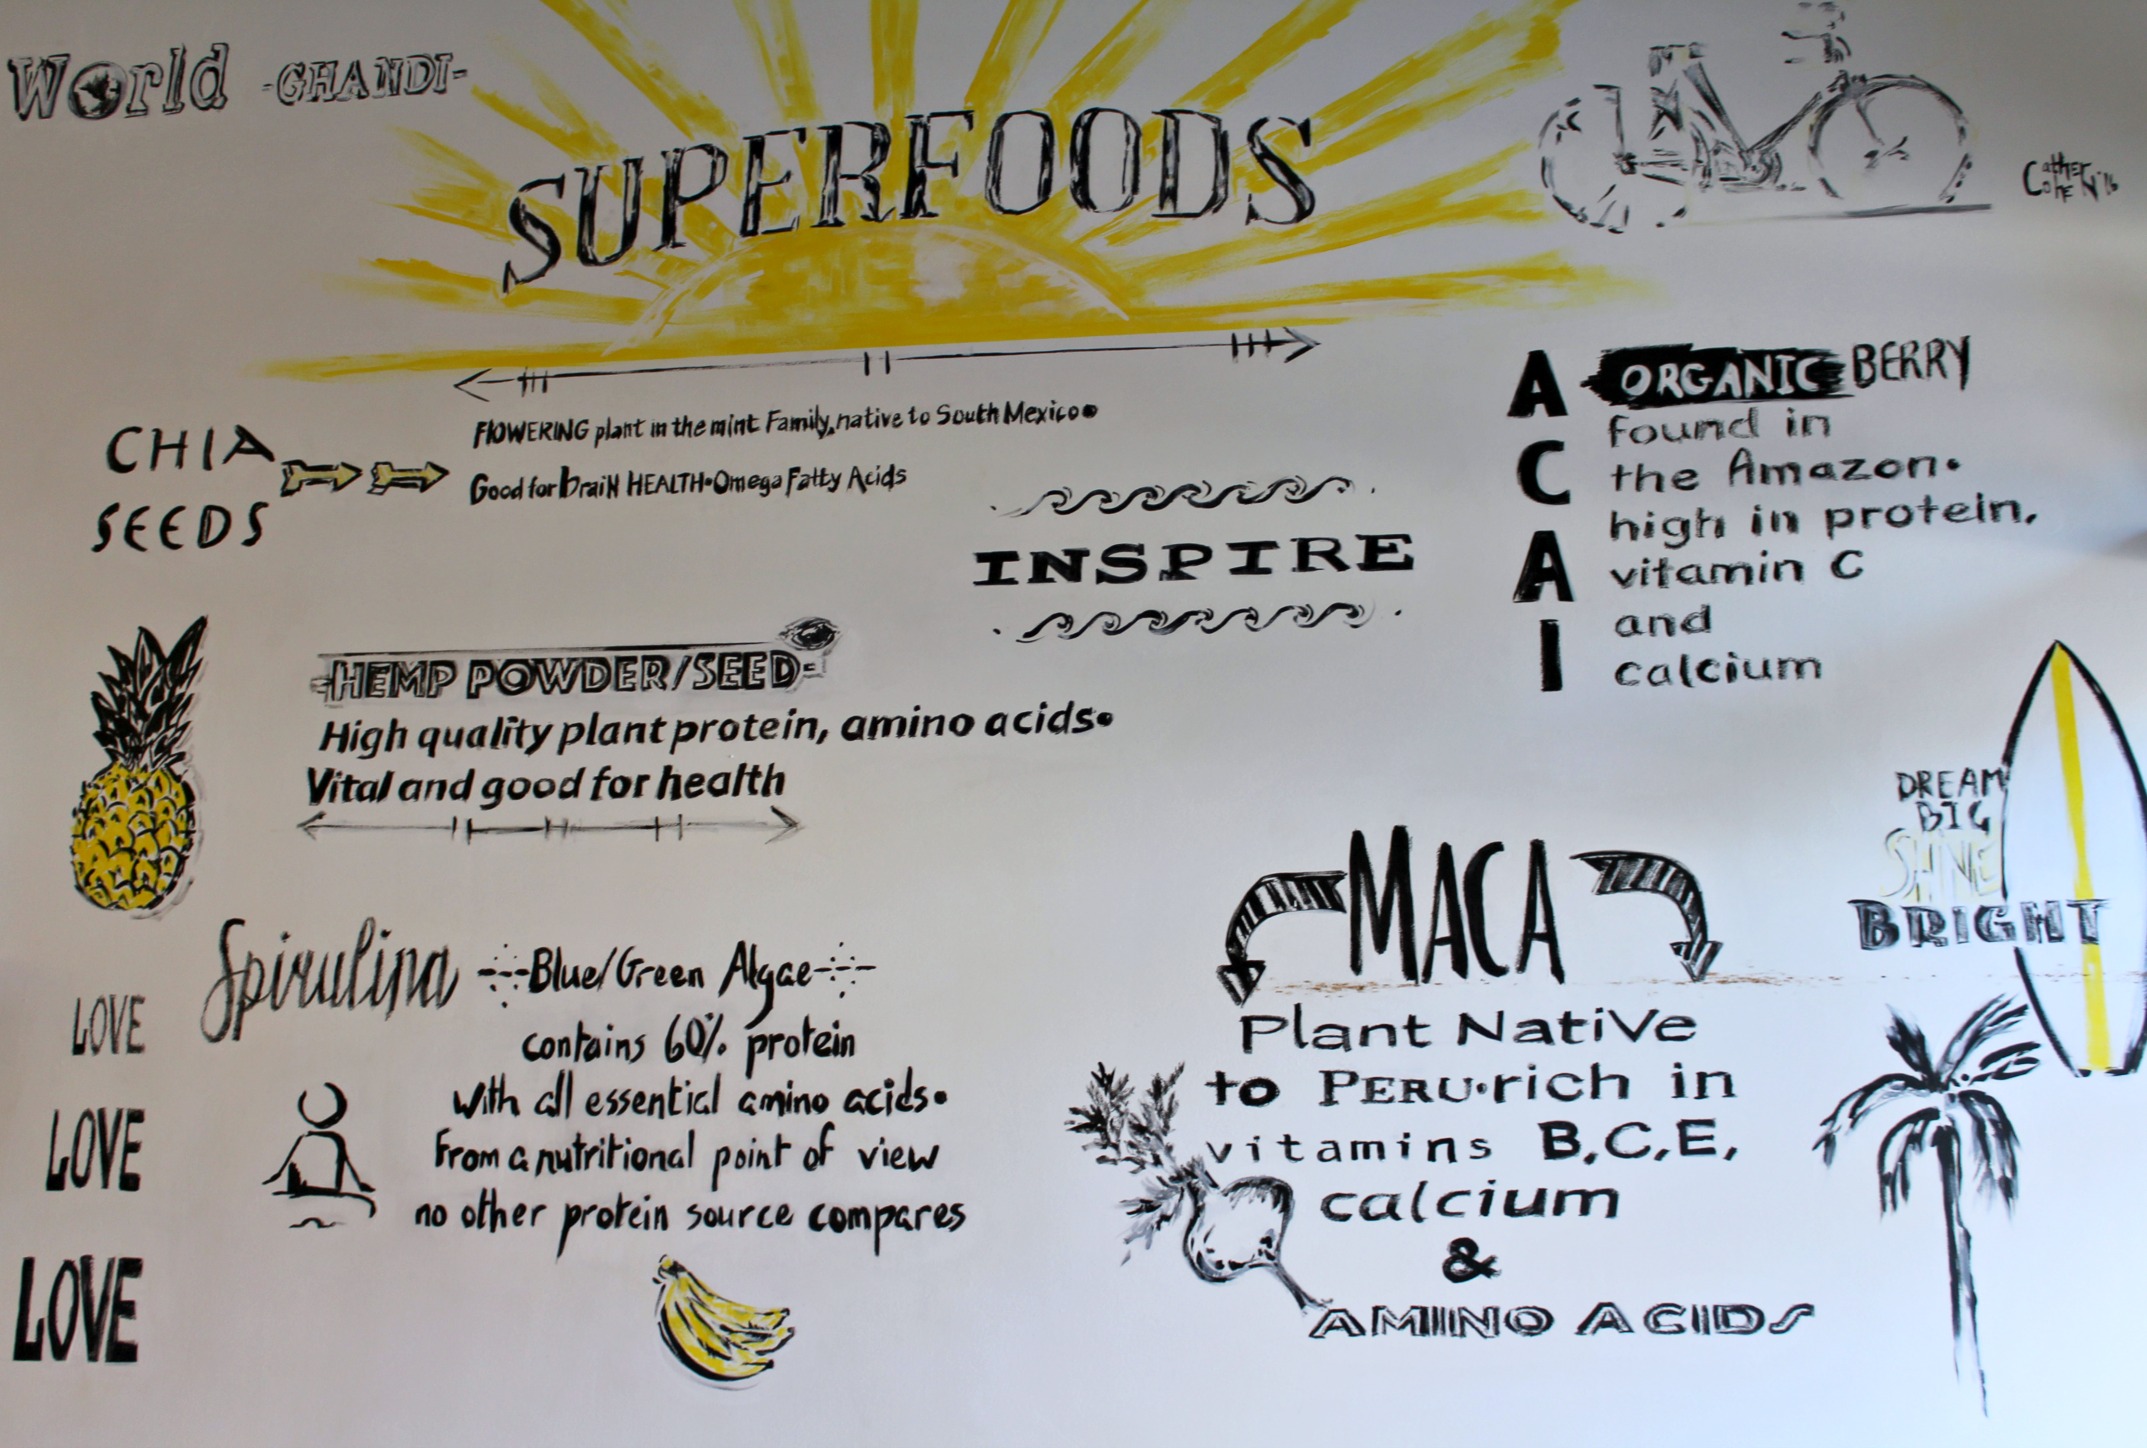 World -GHANDI-
SUPERFOODS
Cather
Cohen '16
CHIA
SEEDS
FlOWERING plant in the mint Family, native to South Mexico•
Good for braiN HEALTH•Omega Fatty Acids
INSPIRE
ACAI
ORGANIC BERRY
found in
the Amazon•
high in protein,
vitamin C
and
calcium
-HEMP POWDER/SEED-
High quality plant protein, amino acids•
Vital and good for health
DREAM
BIG
SHINE
BRIGHT
Spirulina
Blue/Green Algae
contains 60% protein
with all essential amino acids•
From a nutritional point of view
no other protein source compares
LOVE
LOVE
LOVE
MACA
Plant NatiVe
to PERU•rich in
vitamins B,C,E,
calcium
&
AMINO ACIDS